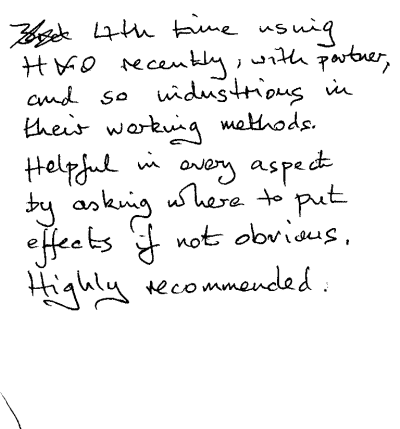 4th time using
H&O recently, with partner,
and so industrious in
their working methods.
Helpful in every aspect
by asking where to put
effects if not obvious.
Highly recommended.